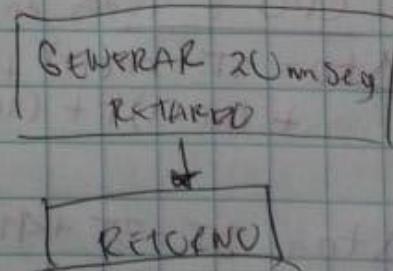 GENERAR 20 mseg
RETARDO
RETORNO